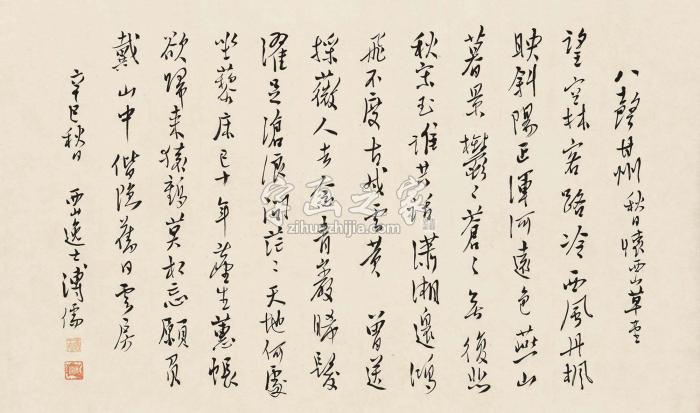 八聲甘州 秋日懷西山草堂
望空林客路冷西風丹楓
映斜陽正渾河遠色燕山
暮景鬱〻蒼〻無復悲
秋宋玉誰共瀟湘邊鴻
飛不度古戍雲黃 曾送
採薇人去念青巖晞髮
濯足滄浪問茫〻天地何處
坐藜床已十年塵生蕙帳
欲歸來猿鶴莫相忘願負
戴山中偕隱舊日雲房
辛巳秋日 西山逸士溥儒
字画之家
zihuazhijia.com